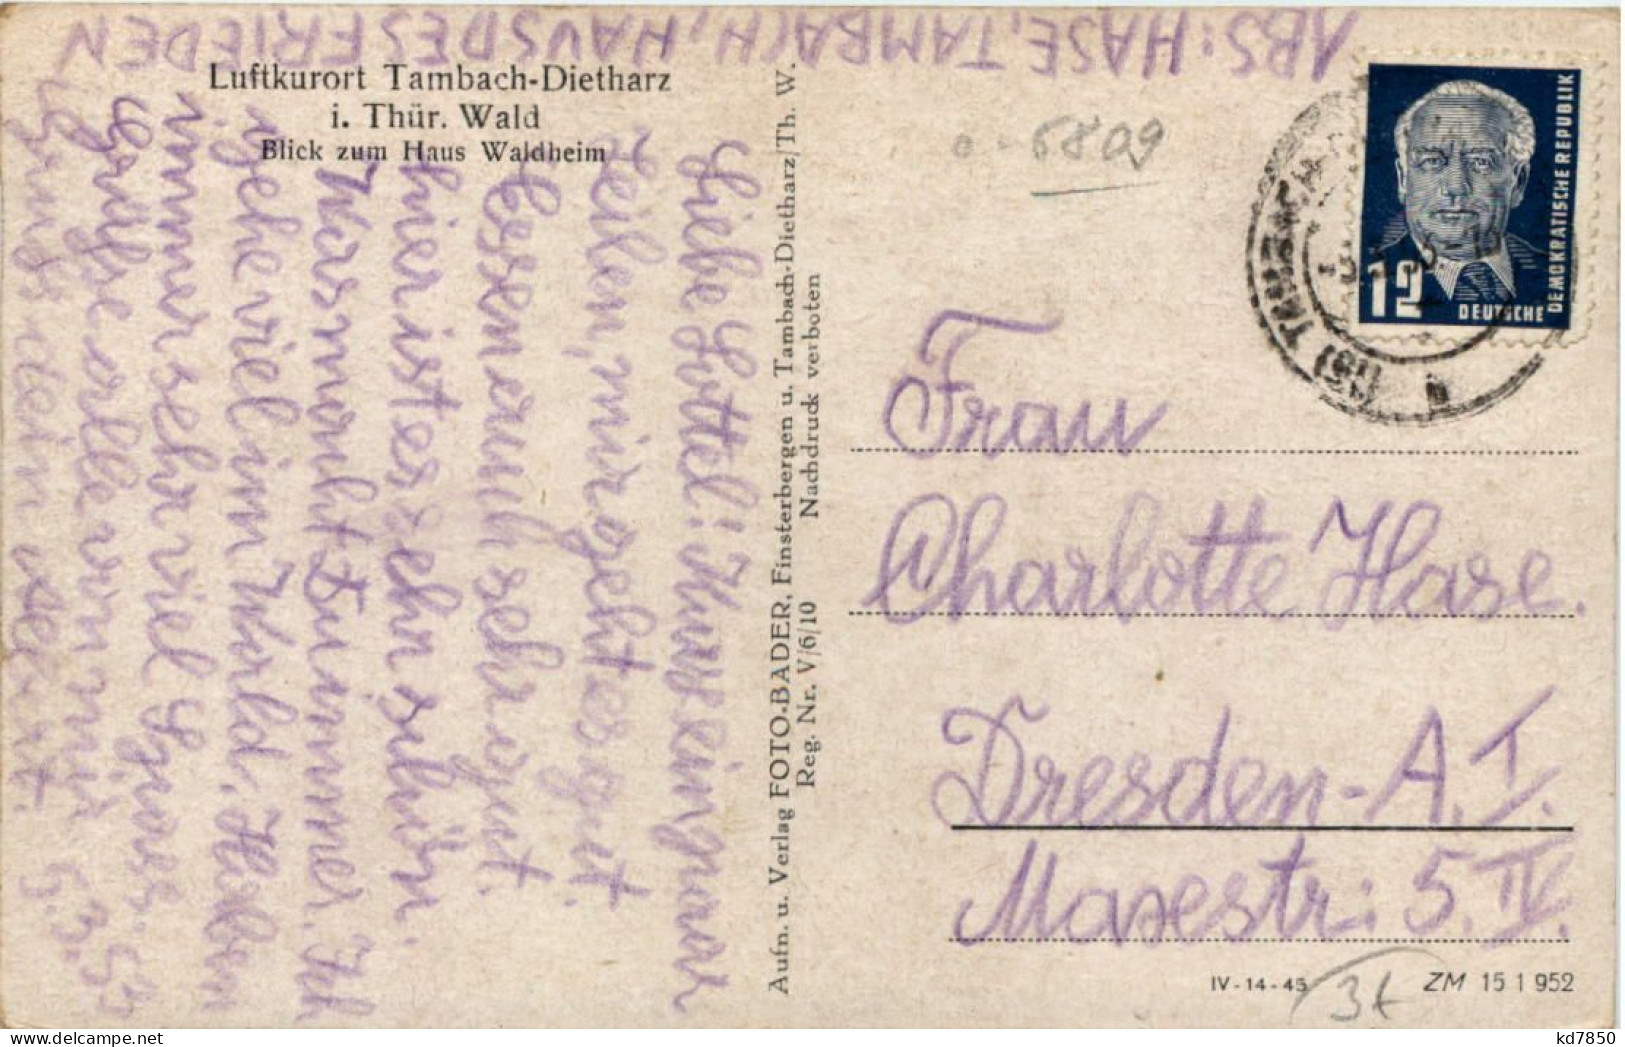 ABS: HASE, TAMBACH, HAUS DES FRIEDEN
Luftkurort Tambach-Dietharz
i. Thür. Wald
Blick zum Haus Waldheim
Liebe Lottel! Nur ein paar
Zeilen, mir geht es gut
auch sehr gut.
hier ist es sehr schön.
Was macht Ihr immer. Ich
gehe viel im Wald. Haben
immer sehr viel
Grüße alle von mir
5.3.53
Aufn. u. Verlag FOTO-BADER, Finsterbergen u. Tambach-Dietharz/Th. W.
Reg. Nr. V/6/10 Nachdruck verboten
o - 5809
12
DEUTSCHE
DEMOKRATISCHE REPUBLIK
Frau
Charlotte Hase.
Dresden-A. I.
Masestr: 5. IV.
IV-14-45
ZM 15 1 952
kd7850